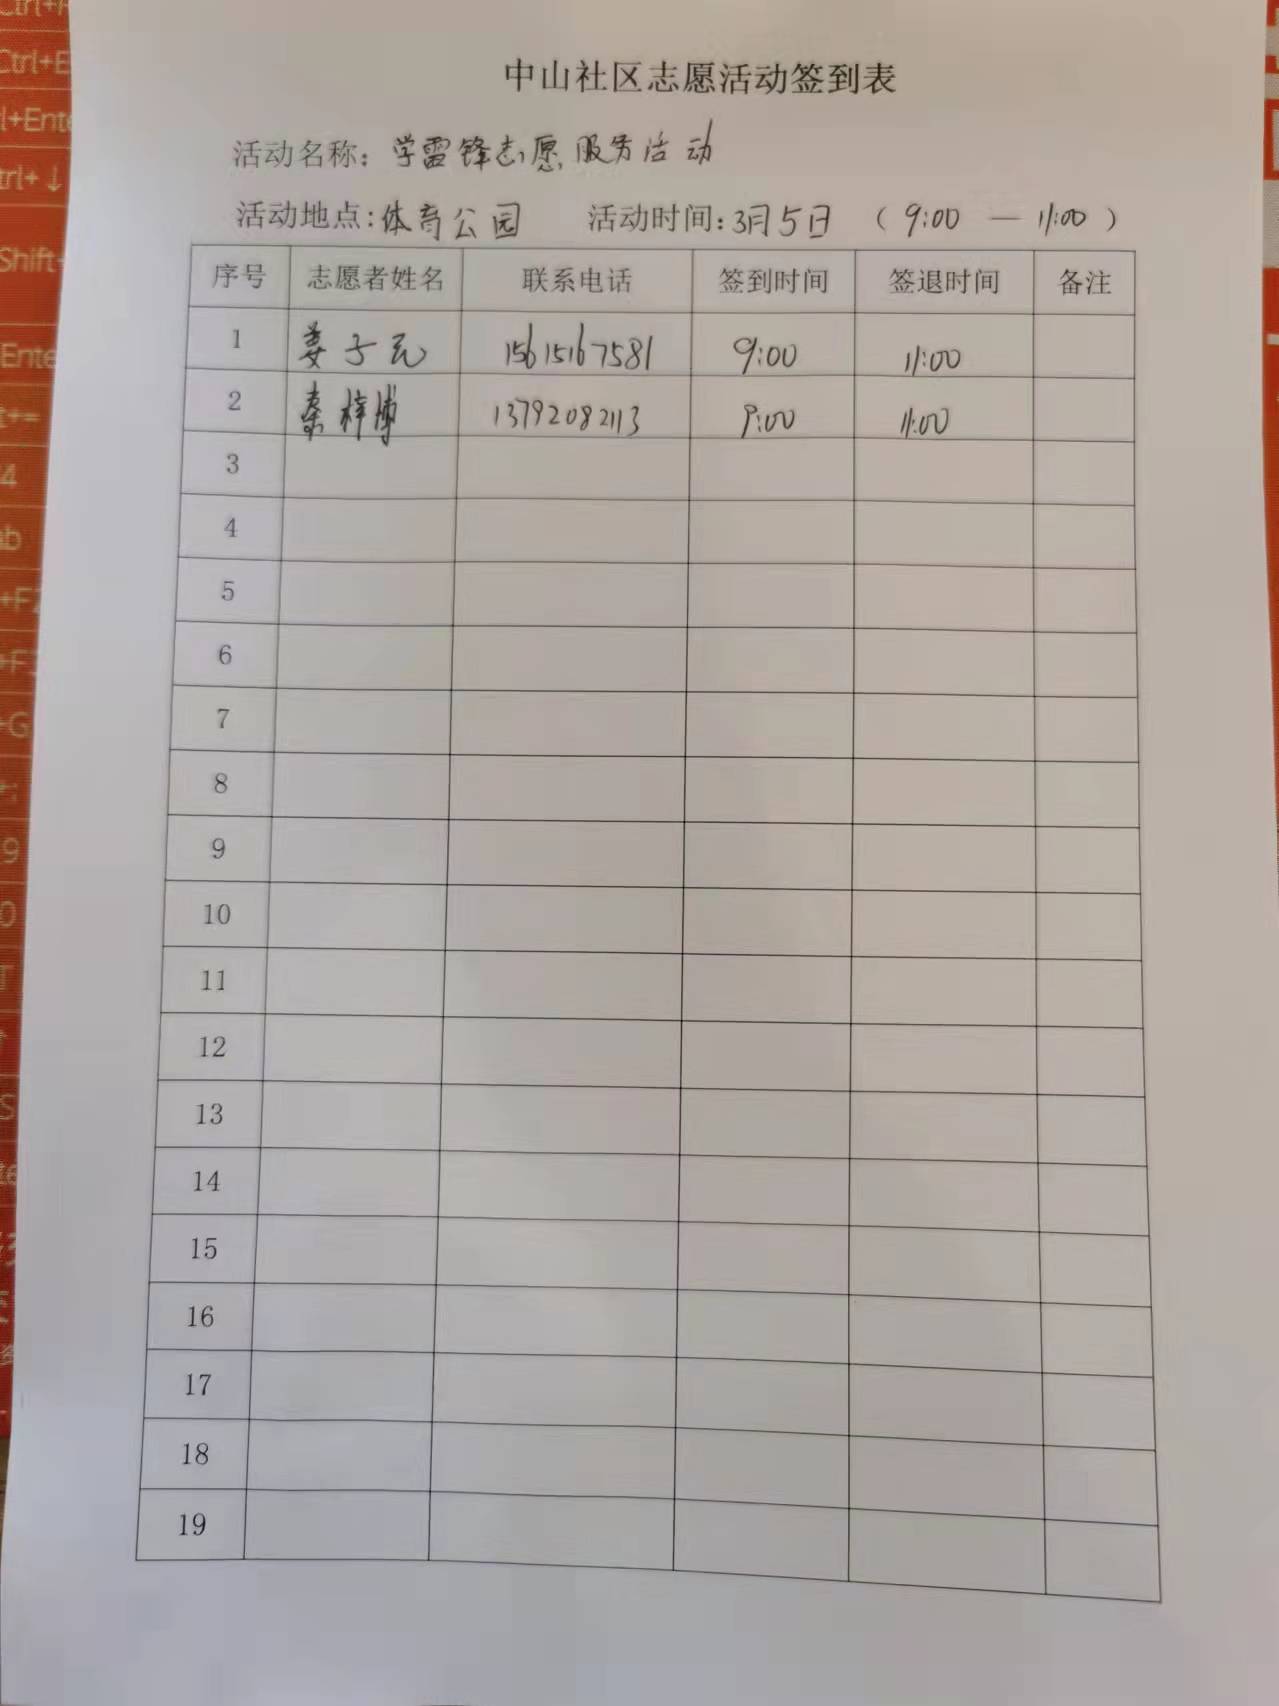 中山社区志愿活动签到表
活动名称：学雷锋志愿服务活动
活动地点:体育公园 活动时间:3月5日 （9:00 — 11:00）
序号 志愿者姓名 联系电话 签到时间 签退时间 备注
1 姜子元 15615167581 9:00 11:00
2 秦梓博 13792082113 9:00 11:00
3
4
5
6
7
8
9
10
11
12
13
14
15
16
17
18
19
Ctrl+E
Ctrl+↓
Shift+
Enter